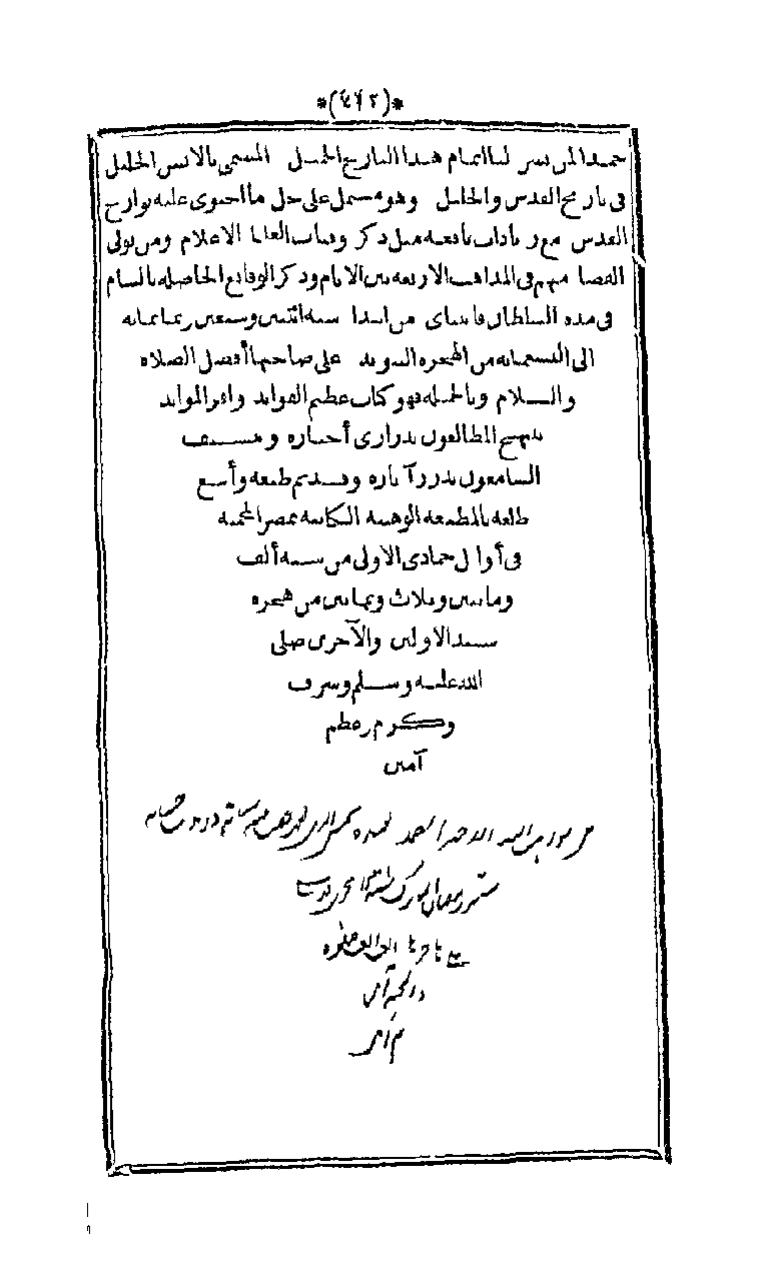 *(٤٤٢)*
حمدا لمن يسر لنا اتمام هذا التاريخ الجليل المسمى بالانس الجليل
فى تاريخ القدس والخليل وهو مشتمل على جل ما احتوى عليه تواريخ
القدس مع زيادات نافعة مثل ذكر وفيات العلما الاعلام ومن تولى
القضا منهم فى المذاهب الاربعة بين الانام وذكر الوقايع الحاصلة بالشام
فى مدة السلطان قايتباى من ابتدا سنة اثنتين وسبعين وثمانمائة
الى التسعمائة من الهجرة النبوية على صاحبها أفضل الصلاة
والسلام وبالجملة فهو كتاب عظيم الفوايد وافر الموايد
يبتهج المطالعون بدرارى أخباره ويتشنف
السامعون بدرر آثاره وقد تم طبعه وأينع
طلعه بالمطبعة الوهبية الكائنة بمصر المحمية
فى أوائل جمادى الاولى من سنة ألف
ومائتين وثلاث وثمانين من هجرة
سيد الاولين والآخرين صلى
الله عليه وسلم وشرف
وكرم وعظم
آمين
الله الاحد الصمد
شهر رمضان المبارك
آمين